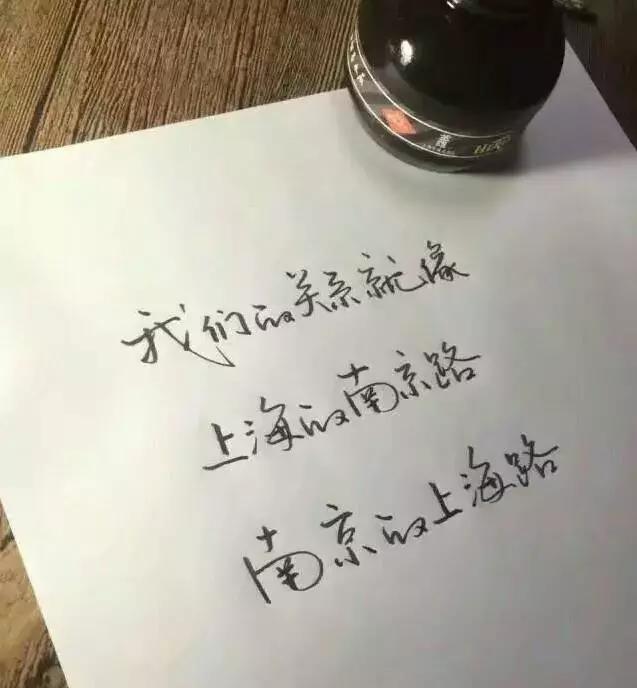 HERO
我们的关系就像
上海的南京路
南京的上海路